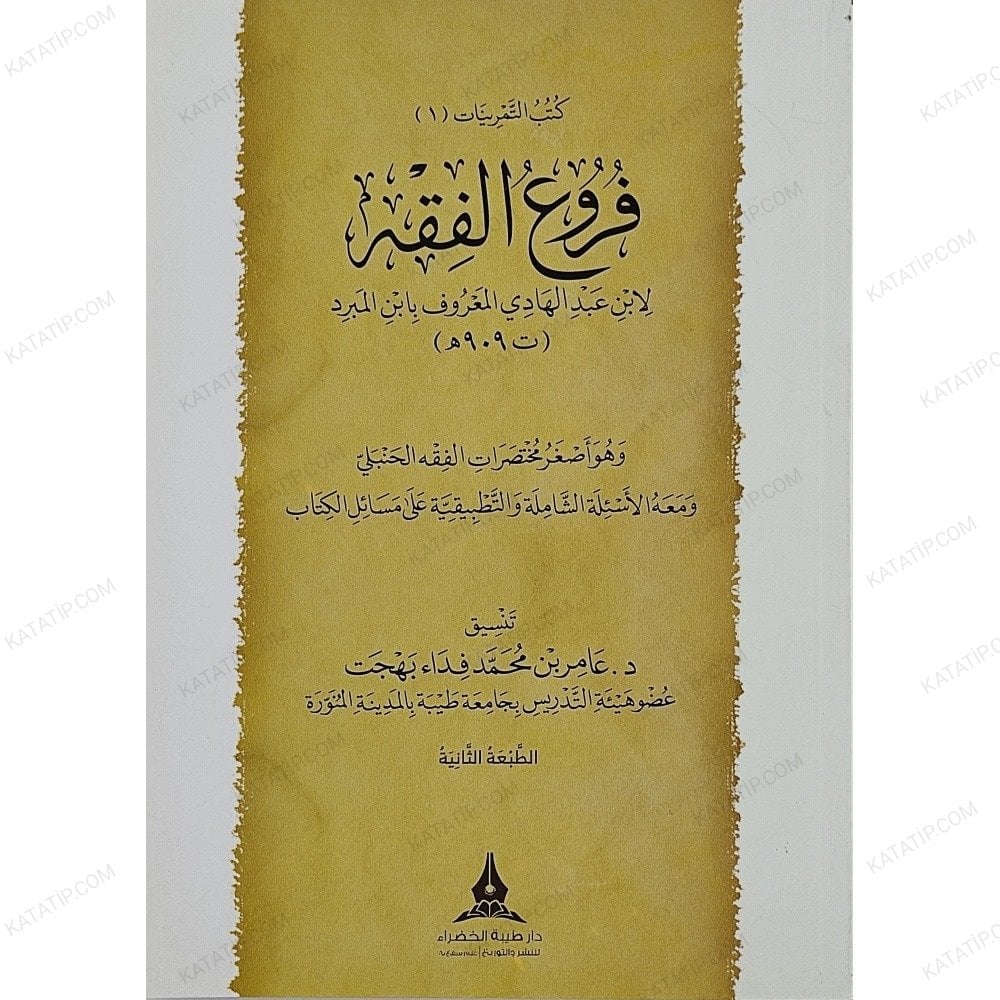 كُتُبُ التَّمْرِينَات (١)
فُرُوعُ الفِقْهِ
لِابْنِ عَبْدِ الهَادِي المَعْرُوفِ بِابْنِ المَبرِد
(ت ٩٠٩هـ)
وَهُوَ أَصْغَرُ مُخْتَصَرَاتِ الفِقْه الحَنْبَلِيّ
وَمَعَهُ الأَسْئِلَة الشَّامِلَة وَالتَّطْبِيقِيَّة عَلَى مَسَائِلِ الكِتَاب
تَنْسِيق
د. عَامِر بْن مُحَمَّد فِدَاء بَهْجَت
عُضْو هَيْئَةِ التَّدْرِيسِ بِجَامِعَة طَيْبَة بِالمَدِينَةِ المُنَوَّرَة
الطَّبْعَةُ الثَّانِيَةُ
دار طيبة الخضراء
للنشر والتوزيع
KATATİP.COM